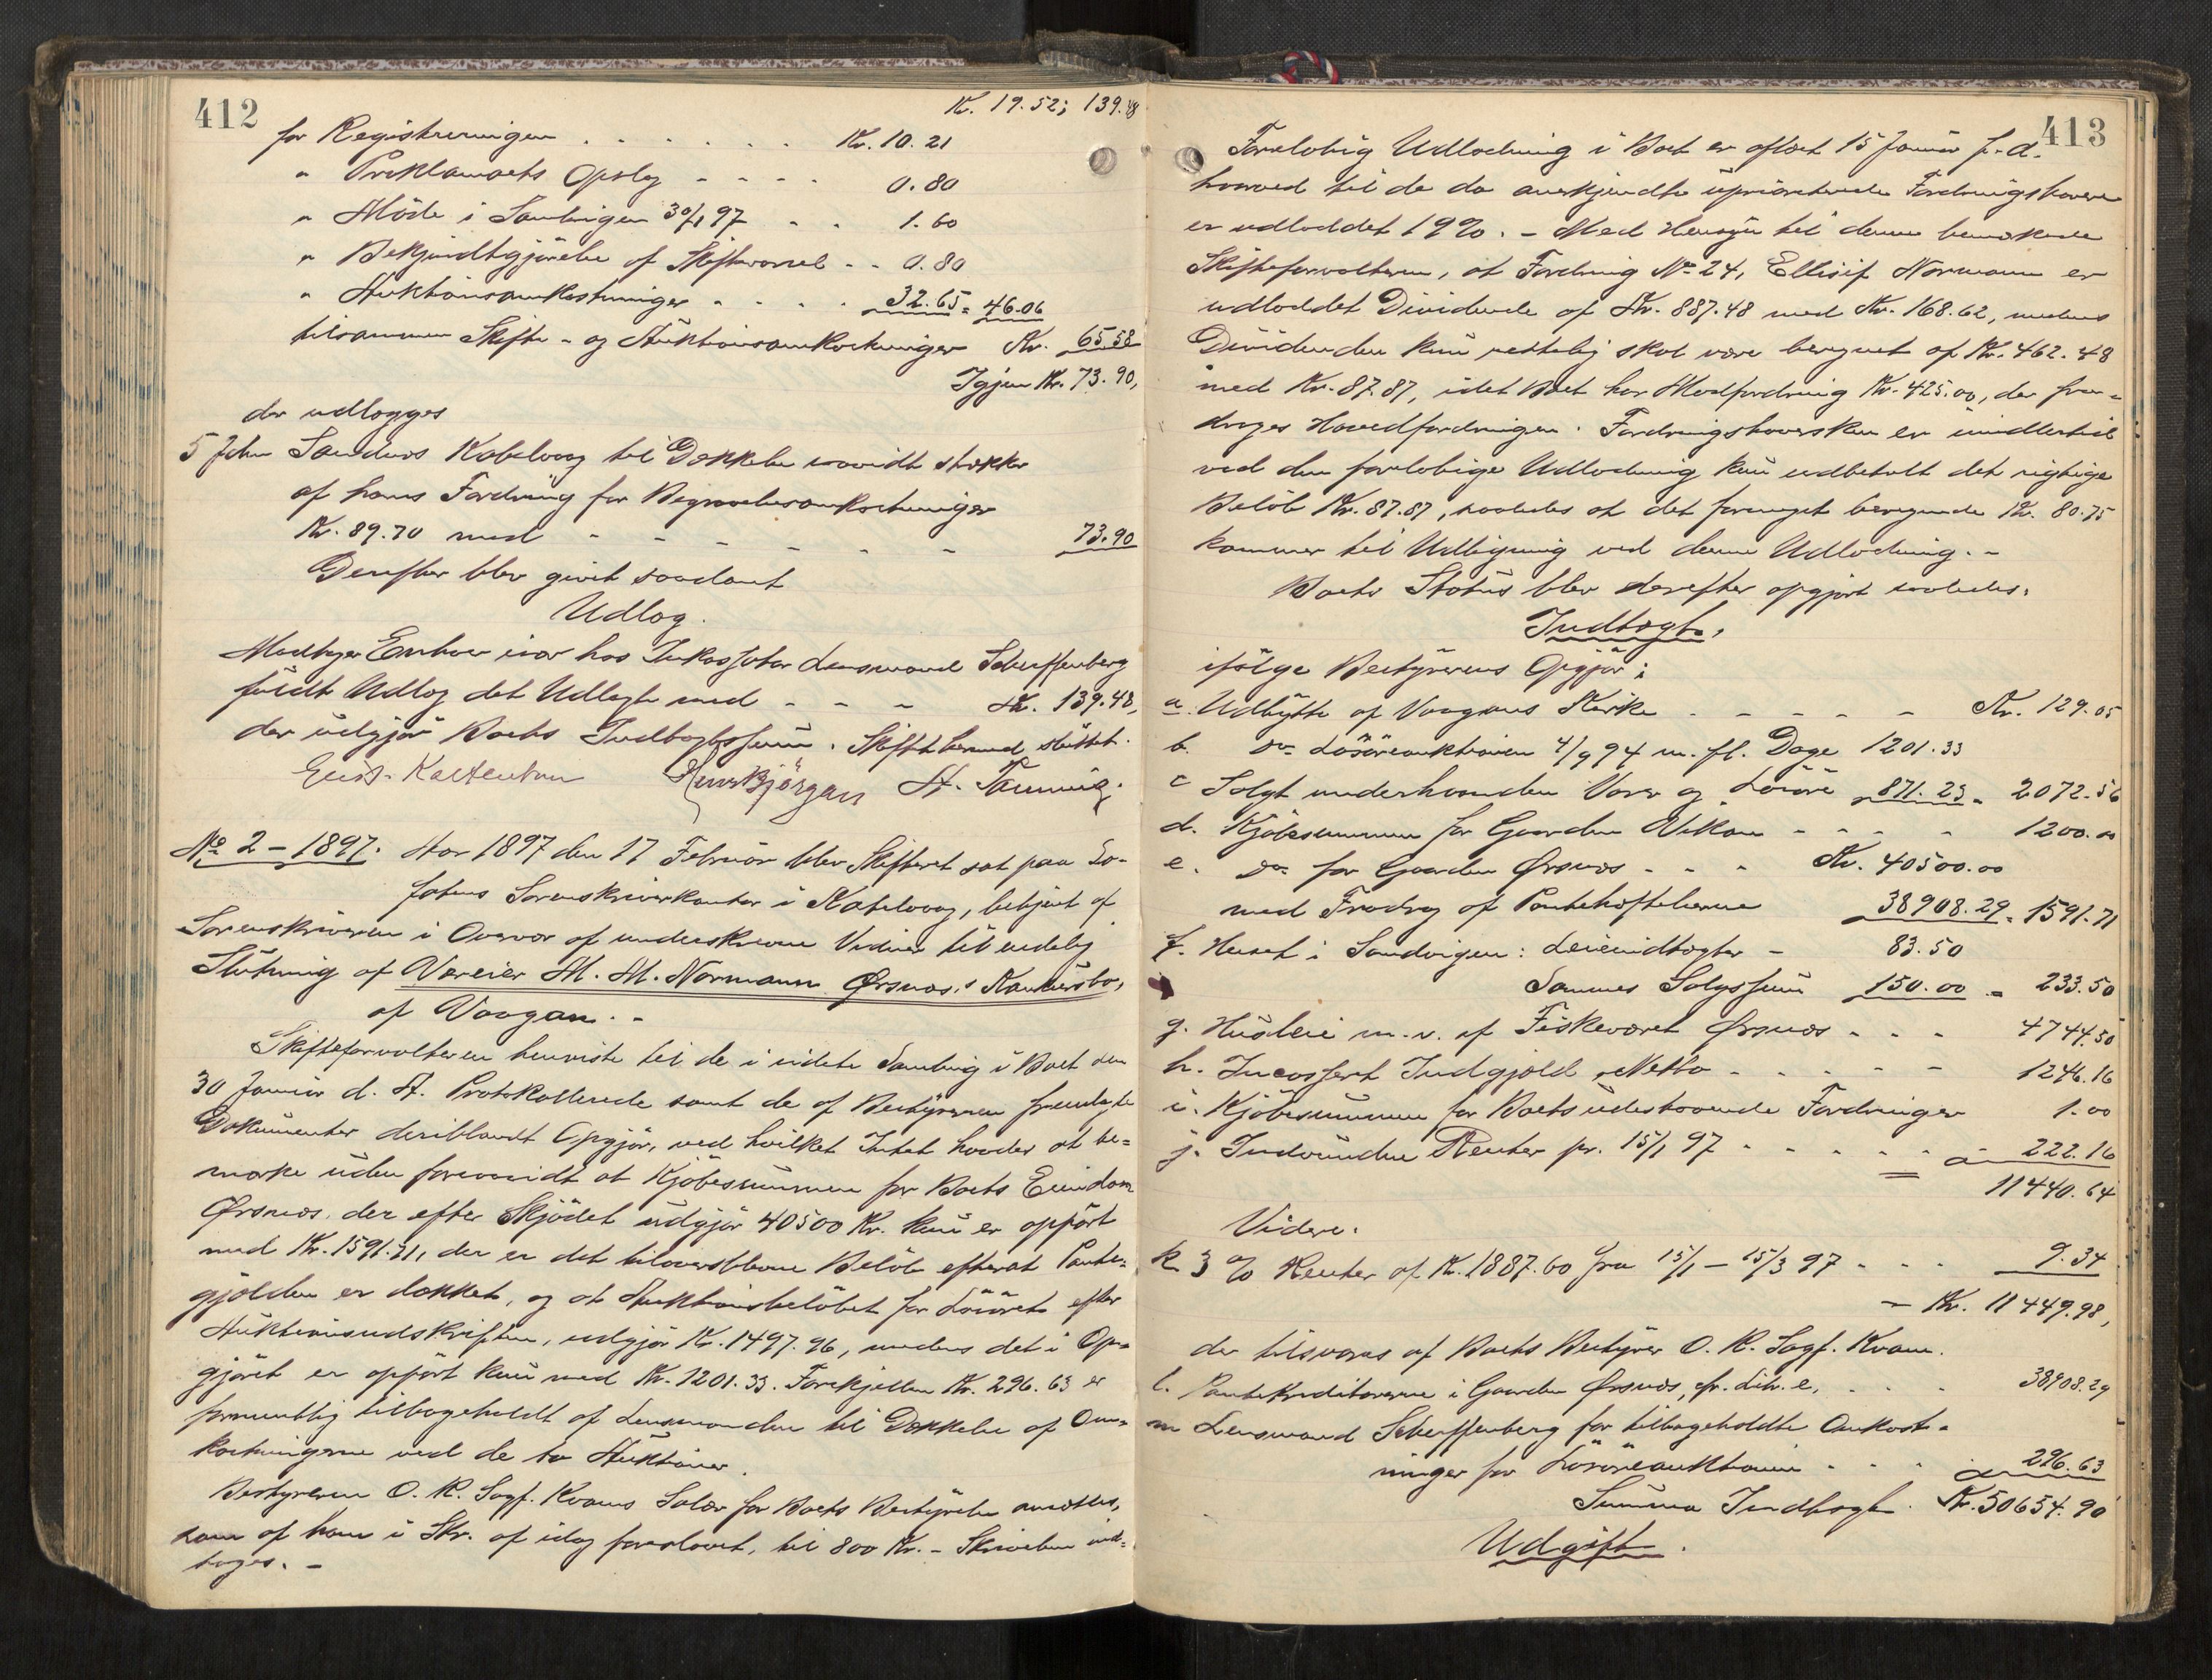 412
Kr. 19.52; 139.48
for Registreringen . . . . . . Kr. 10.21
" Proklamaets Opslag - - - - 0.80
" Møde i Samlingen 30/1 97 - - 1.60
" Bekjendtgjørelse af Skiftevarsel - - 0.80
" Auktionsomkostninger - - - - 32.65 = 46.06
tilsammen Skifte- og Auktionsomkostninger Kr. 65.58
Igjen Kr. 73.90,
der udlægges
5 Kabelvaag til Dækkelse saavidt strækker
af hans Fordring for Begravelsesomkostninger
Kr. 89.70 med - - - - - - 73.90
Derefter blev givet saadant
Udlæg.
Modtager Enhver især hos Inkassator Lensmand Scheffenberg
fuldt Udlæg det Udlagte med - - - Kr. 139.48,
der udgjør Boets Indtægtssum. Skiftet hermed sluttet.
No 2 - 1897. Aar 1897 den 17 Februar blev Skifteret sat paa Lo-
fotens Sorenskriverkontor i Kabelvaag, betjent af
Sorenskriveren i Overvær af underskrevne Vidner til endelig
Slutning af Væreier M. M. Normann Ørsnæs's Konkursbo,
af Vaagan. -
Skifteforvalteren henviste til de i sidste Samling i Boet den
30 Januar d. A. Protokollerede samt de af Bestyreren fremlagte
Dokumenter deriblandt Opgjør, ved hvilket Intet havdes at be=
mærke uden forsaavidt at Kjøbesummen for Boets Eiendom
Ørsnæs, der efter Skjødet udgjør 40500 Kr. kun er opført
med Kr. 1591.71, der er det tiloversblevne Beløb efterat Pante=
gjælden er dækket, og at Auktionsbeløbet for Løsøret efter
Auktionsudskriften, udgjør Kr. 1497.96, medens det i Op=
gjøret er opført kun med Kr. 1201.33. Forskjellen Kr. 296.63 er
formentlig tilbageholdt af Lensmanden til Dækkelse af Om=
kostningerne ved de to Auktioner.
Bestyreren O. K. Sagf. Kvams Salær for Boets Bestyrelse ansættes,
som af ham i Skr. af idag foreslaaet, til 800 Kr. - Skrivelsen ind=
tages. -
413
Foreløbig Udlodning i Boet er afløst 15 Januar f. A.
hvorved til de da anerkjendte upriorterede Fordringshavere
er udloddet 19%. - Med Hensyn til denne bemærkede
Skifteforvalteren, at Fordring No 24, Ellisif Normann er
udloddet Dividende af Kr. 887.48 med Kr. 168.62, medens
Dividenden kun rettelig skal være beregnet af Kr. 462.48
med Kr. 87.87, idet Boet har Modfordring Kr. 425.00, der fra=
drages Hovedfordringen. Fordringshaversken er imidlertid
ved den foreløbige Udlodning kun udbetalt det rigtige
Beløb Kr. 87.87, saaledes at det formeget beregnede Kr. 80.75
kommer til Udligning ved denne Udlodning. -
Boets Status blev derefter opgjort saaledes:
Indtægt,
ifølge Bestyrerens Opgjør:
a. Udbytte af Vaagans Kirke - - - - - Kr. 129.05
b. do Løsøreauktionen 4/9 94 m. fl. Dage 1201.33
c Solgt underhaanden Varer og Løsøre 871.23 = 2072.56
d. Kjøbesummen for Gaarden Vikan - - - - 1200.00
e. do for Gaarden Ørsnæs - - - Kr. 40500.00
med Fradrag af Pantehæftelserne 38908.29 = 1591.71
f. Huset i Sandvigen: Leieindtægter - 83.50
Sammes Salgssum 150.00 = 233.50
g. Husleie m. v. af Fiskeværet Ørsnæs - - - 4744.50
h. Incasseret Indgjæld, Netto - - - - - 1246.16
i. Kjøbesummen for Boets udestaaende Fordringer 1.00
j. Indvundne Renter pr. 15/1 97 - - - - - 222.16
11440.64
Videre.
k 3 % Renter af Kr. 1887.60 fra 15/1 - 15/3 97 - - - 9.34
- Kr. 11449.98,
der tilsvares af Boets Bestyrer O. K. Sagf. Kvam.
l. Pantekreditorerne i Gaarden Ørsnæs, cfr. Litr. e. . . . 38908.29
m Lensmand Scheffenberg for tilbageholdte Omkost=
ninger for Løsøreauktionen - - - 296.63
Summa Indtægt. Kr. 50654.90
Udgift.